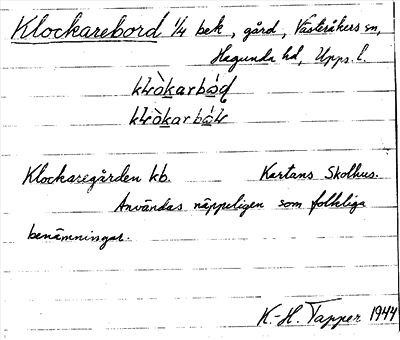 Klockarebord 1/4 bek, gård, Västeråkers sn,
Hagunda hd, Upps. l.
Klockaregården kb. Kartans Skolhus.
Användas näppeligen som folkliga
benämningar.
K.-H. Tapper 1944